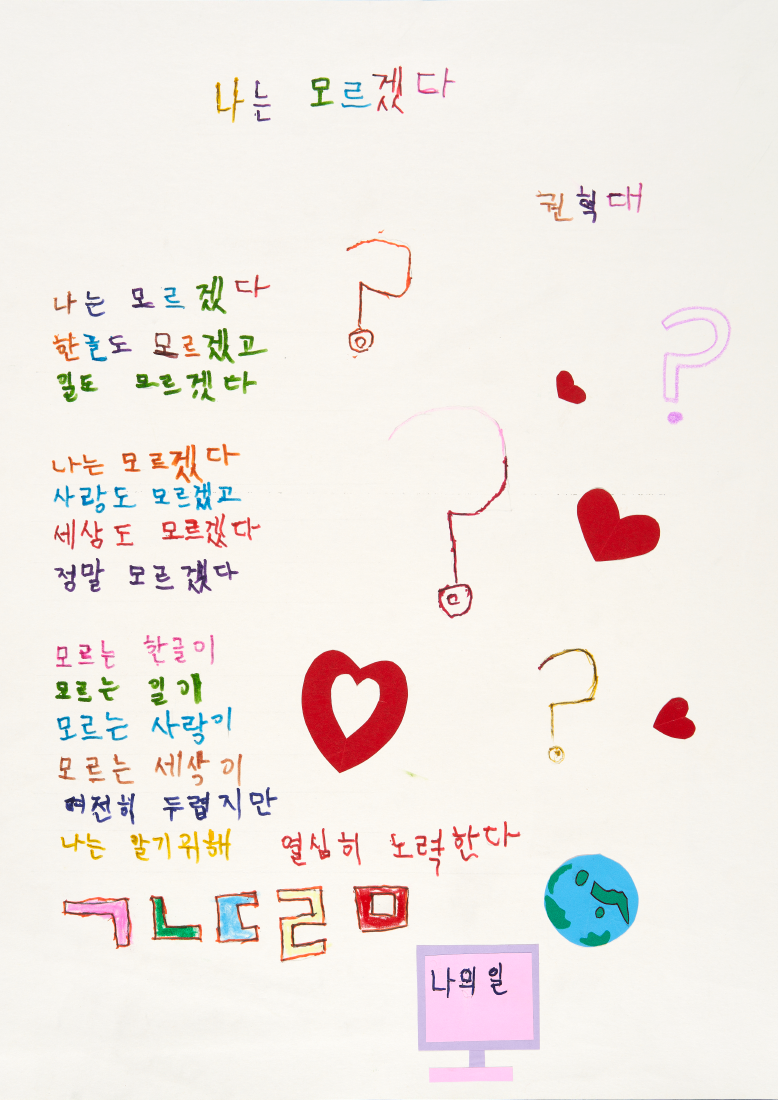 나는 모르겠다
권혁대
나는 모르겠다
한글도 모르겠고
일도 모르겠다
나는 모르겠다
사랑도 모르겠고
세상도 모르겠다
정말 모르겠다
모르는 한글이
모르는 일이
모르는 사랑이
모르는 세상이
여전히 두렵지만
나는 알기위해 열심히 노력한다
ㄱㄴㄷㄹㅁ
나의 일